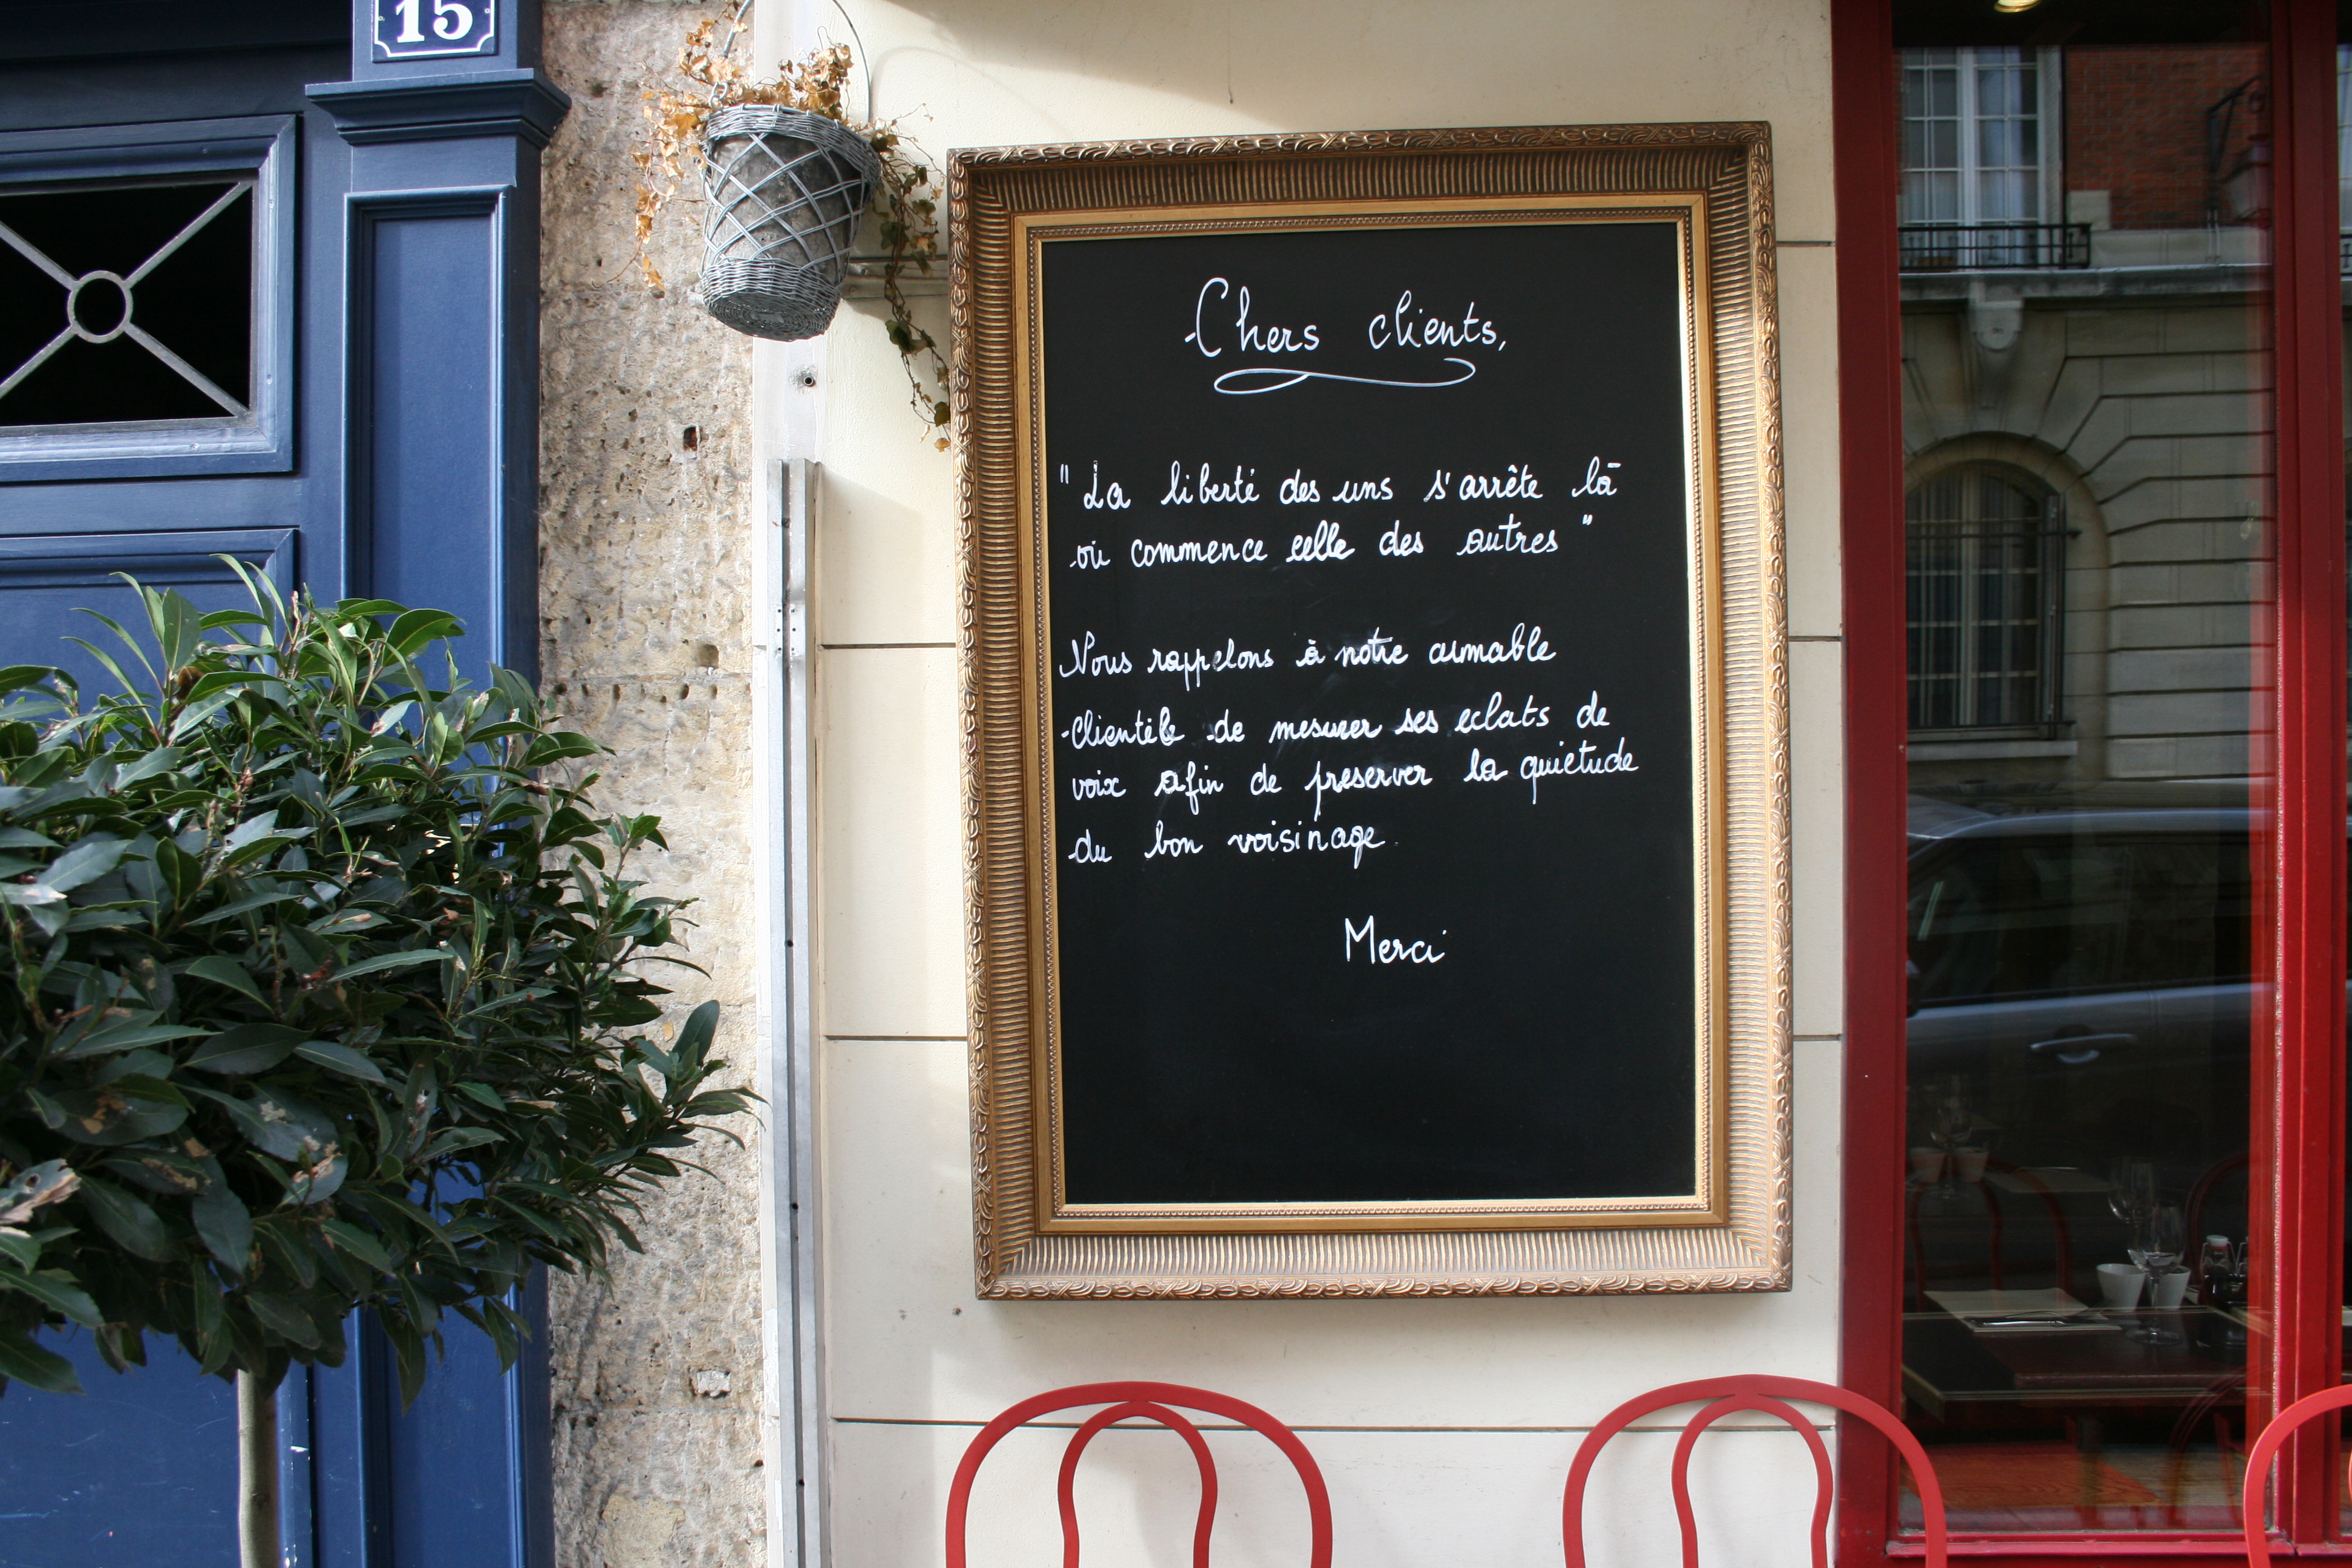 15
Chers clients,
"La liberté des uns s'arrête là
où commence celle des autres"
Nous rappelons à notre aimable
Clientèle de mesurer ses eclats de
voix afin de preserver la quiétude
du bon voisinage.
Merci